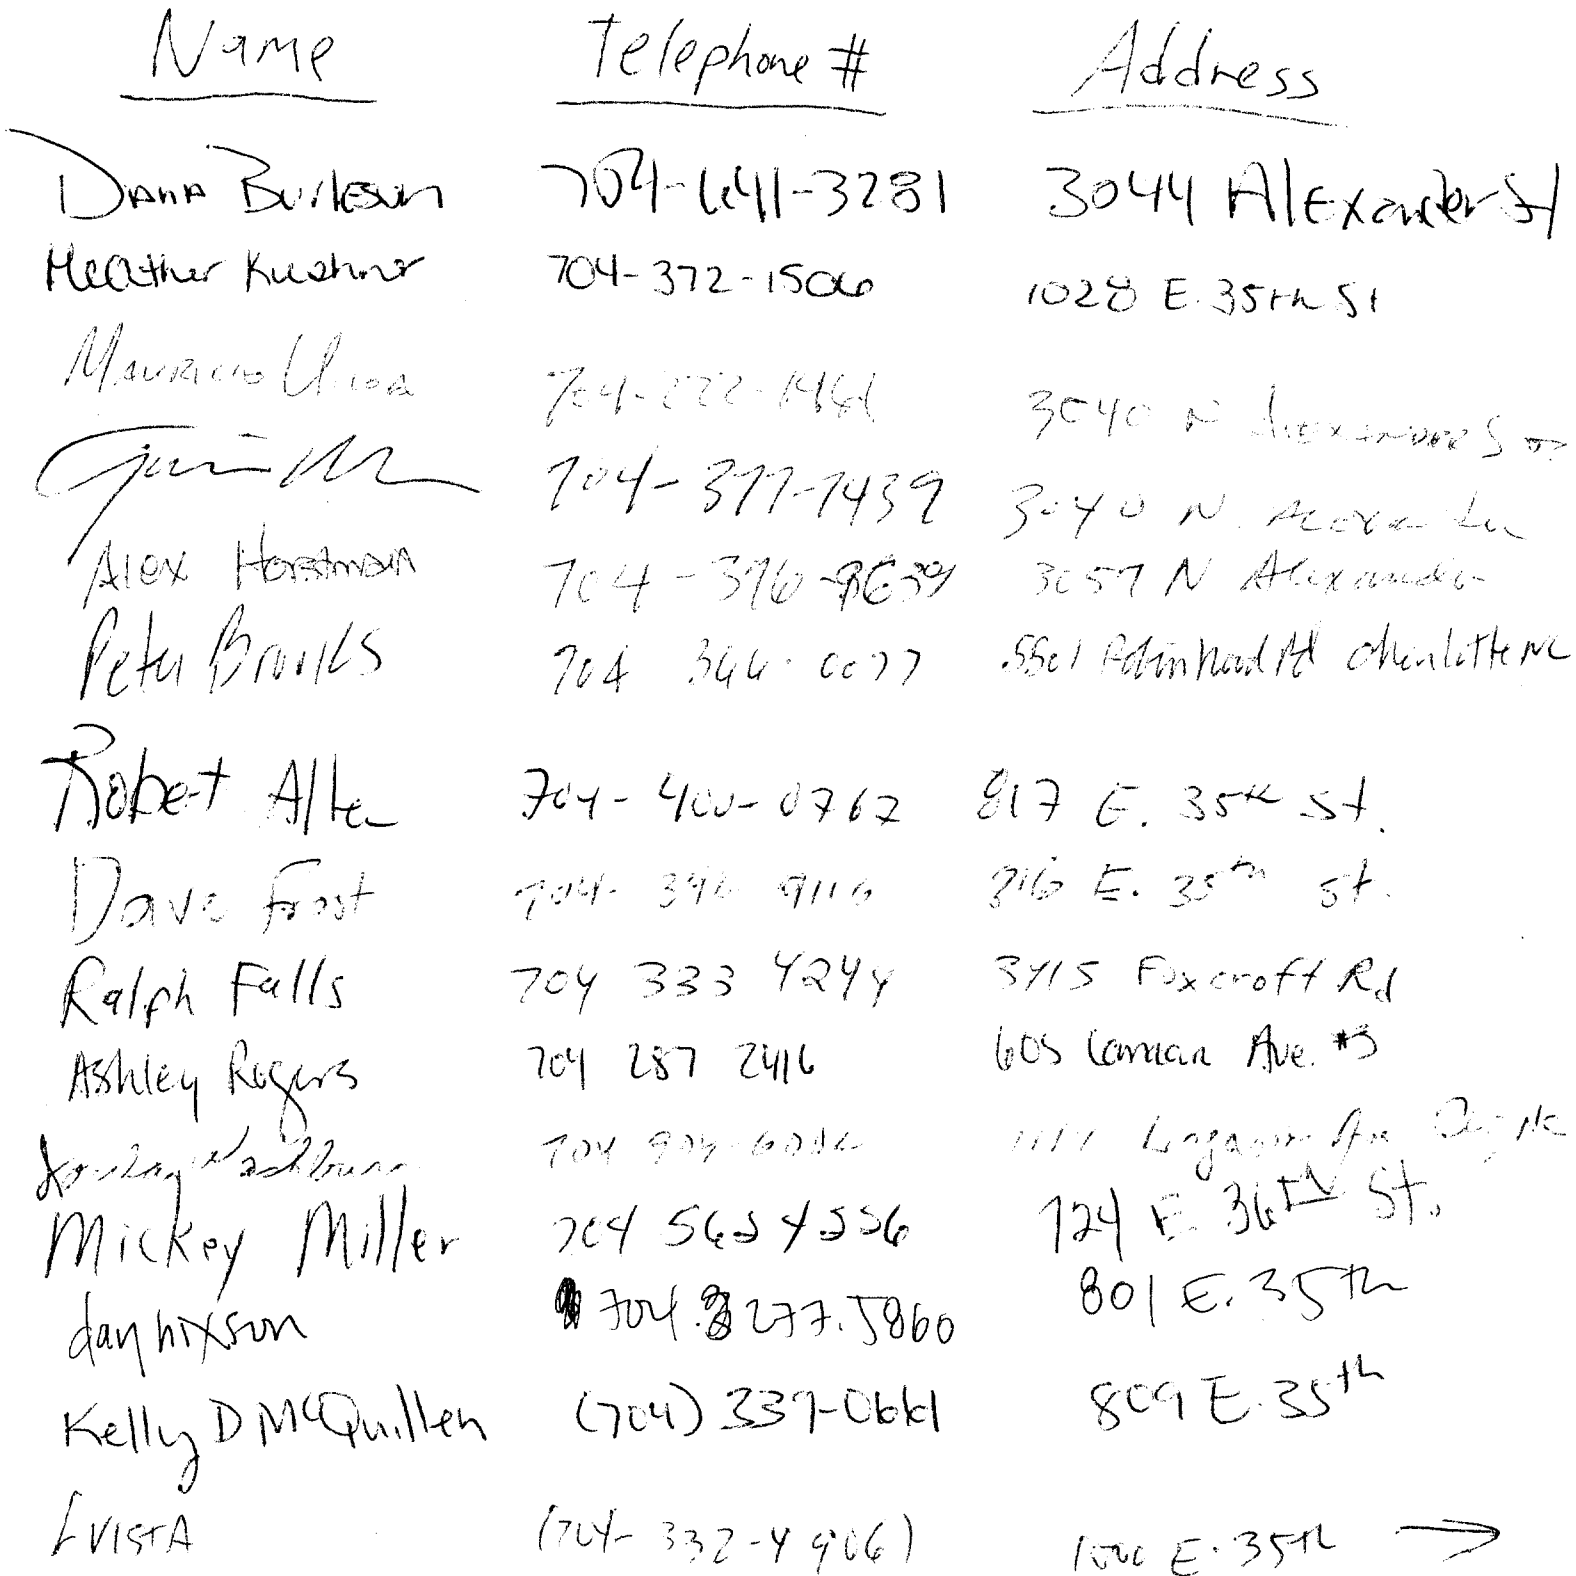 Name Telephone # Address
Dana Burleson 704-641-3281 3044 Alexander St
Heather Kushner 704-372-1506 1028 E. 35th St
Mauricio Ulloa 704- 3040 N
704-377-7439 3040 N.
Alex Horstman 704-376- 3057 N Alexander
Peter Brooks 704 366-0077 5501 Robinhood Rd Charlotte NC
Robert Alten 704-400-0767 817 E. 35th St.
Dave Frost 704- 816 E. 35th St.
Ralph Falls 704 333 4244 3415 Foxcroft Rd
Ashley Rogers 704 287 2416 605 Ave. #3
Washburn 704
Mickey Miller 704 562 4556 724 E. 36TH St.
dan hixson 704.277.5860 801 E. 35th
Kelly D McQuillen (704) 337-0661 809 E. 35th
(704-332-4906) 1000 E. 35th →